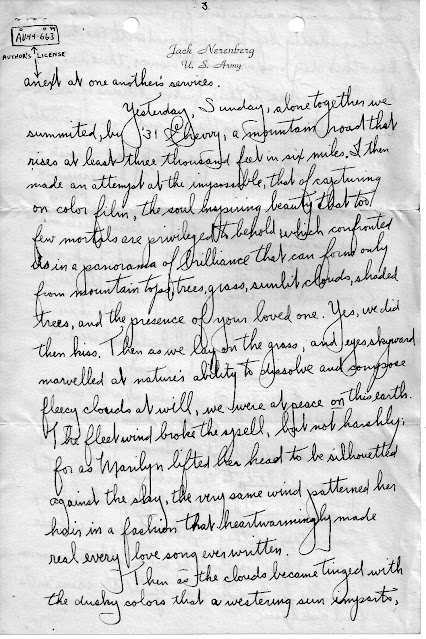 3.
AU44-663
AUTHOR'S LICENSE
Jack Nerenberg
U. S. Army
anext at one another's services.
Yesterday, Sunday, alone together we
summited, by '31 Chevvy, a mountain road that
rises at least three thousand feet in six miles. I then
made an attempt at the impossible, that of capturing
on color film, the soul inspiring beauty that too
few mortals are privileged to behold which confronted
us in a panorama of brilliance that can form only
from mountain tops, trees, grass, sunlit clouds, shaded
trees, and the presence of your loved one. Yes, we did
then kiss. Then as we lay on the grass, and eyes skyward
marvelled at nature's ability to dissolve and compose
fleecy clouds at will, we were at peace on this earth.
The fleet wind broke the spell, but not harshly;
for as Marilyn lifted her head to be silhouetted
against the sky, the very same wind patterned her
hair in a fashion that heartwarmingly made
real every love song ever written.
Then as the clouds became tinged with
the dusky colors that a westering sun imparts,